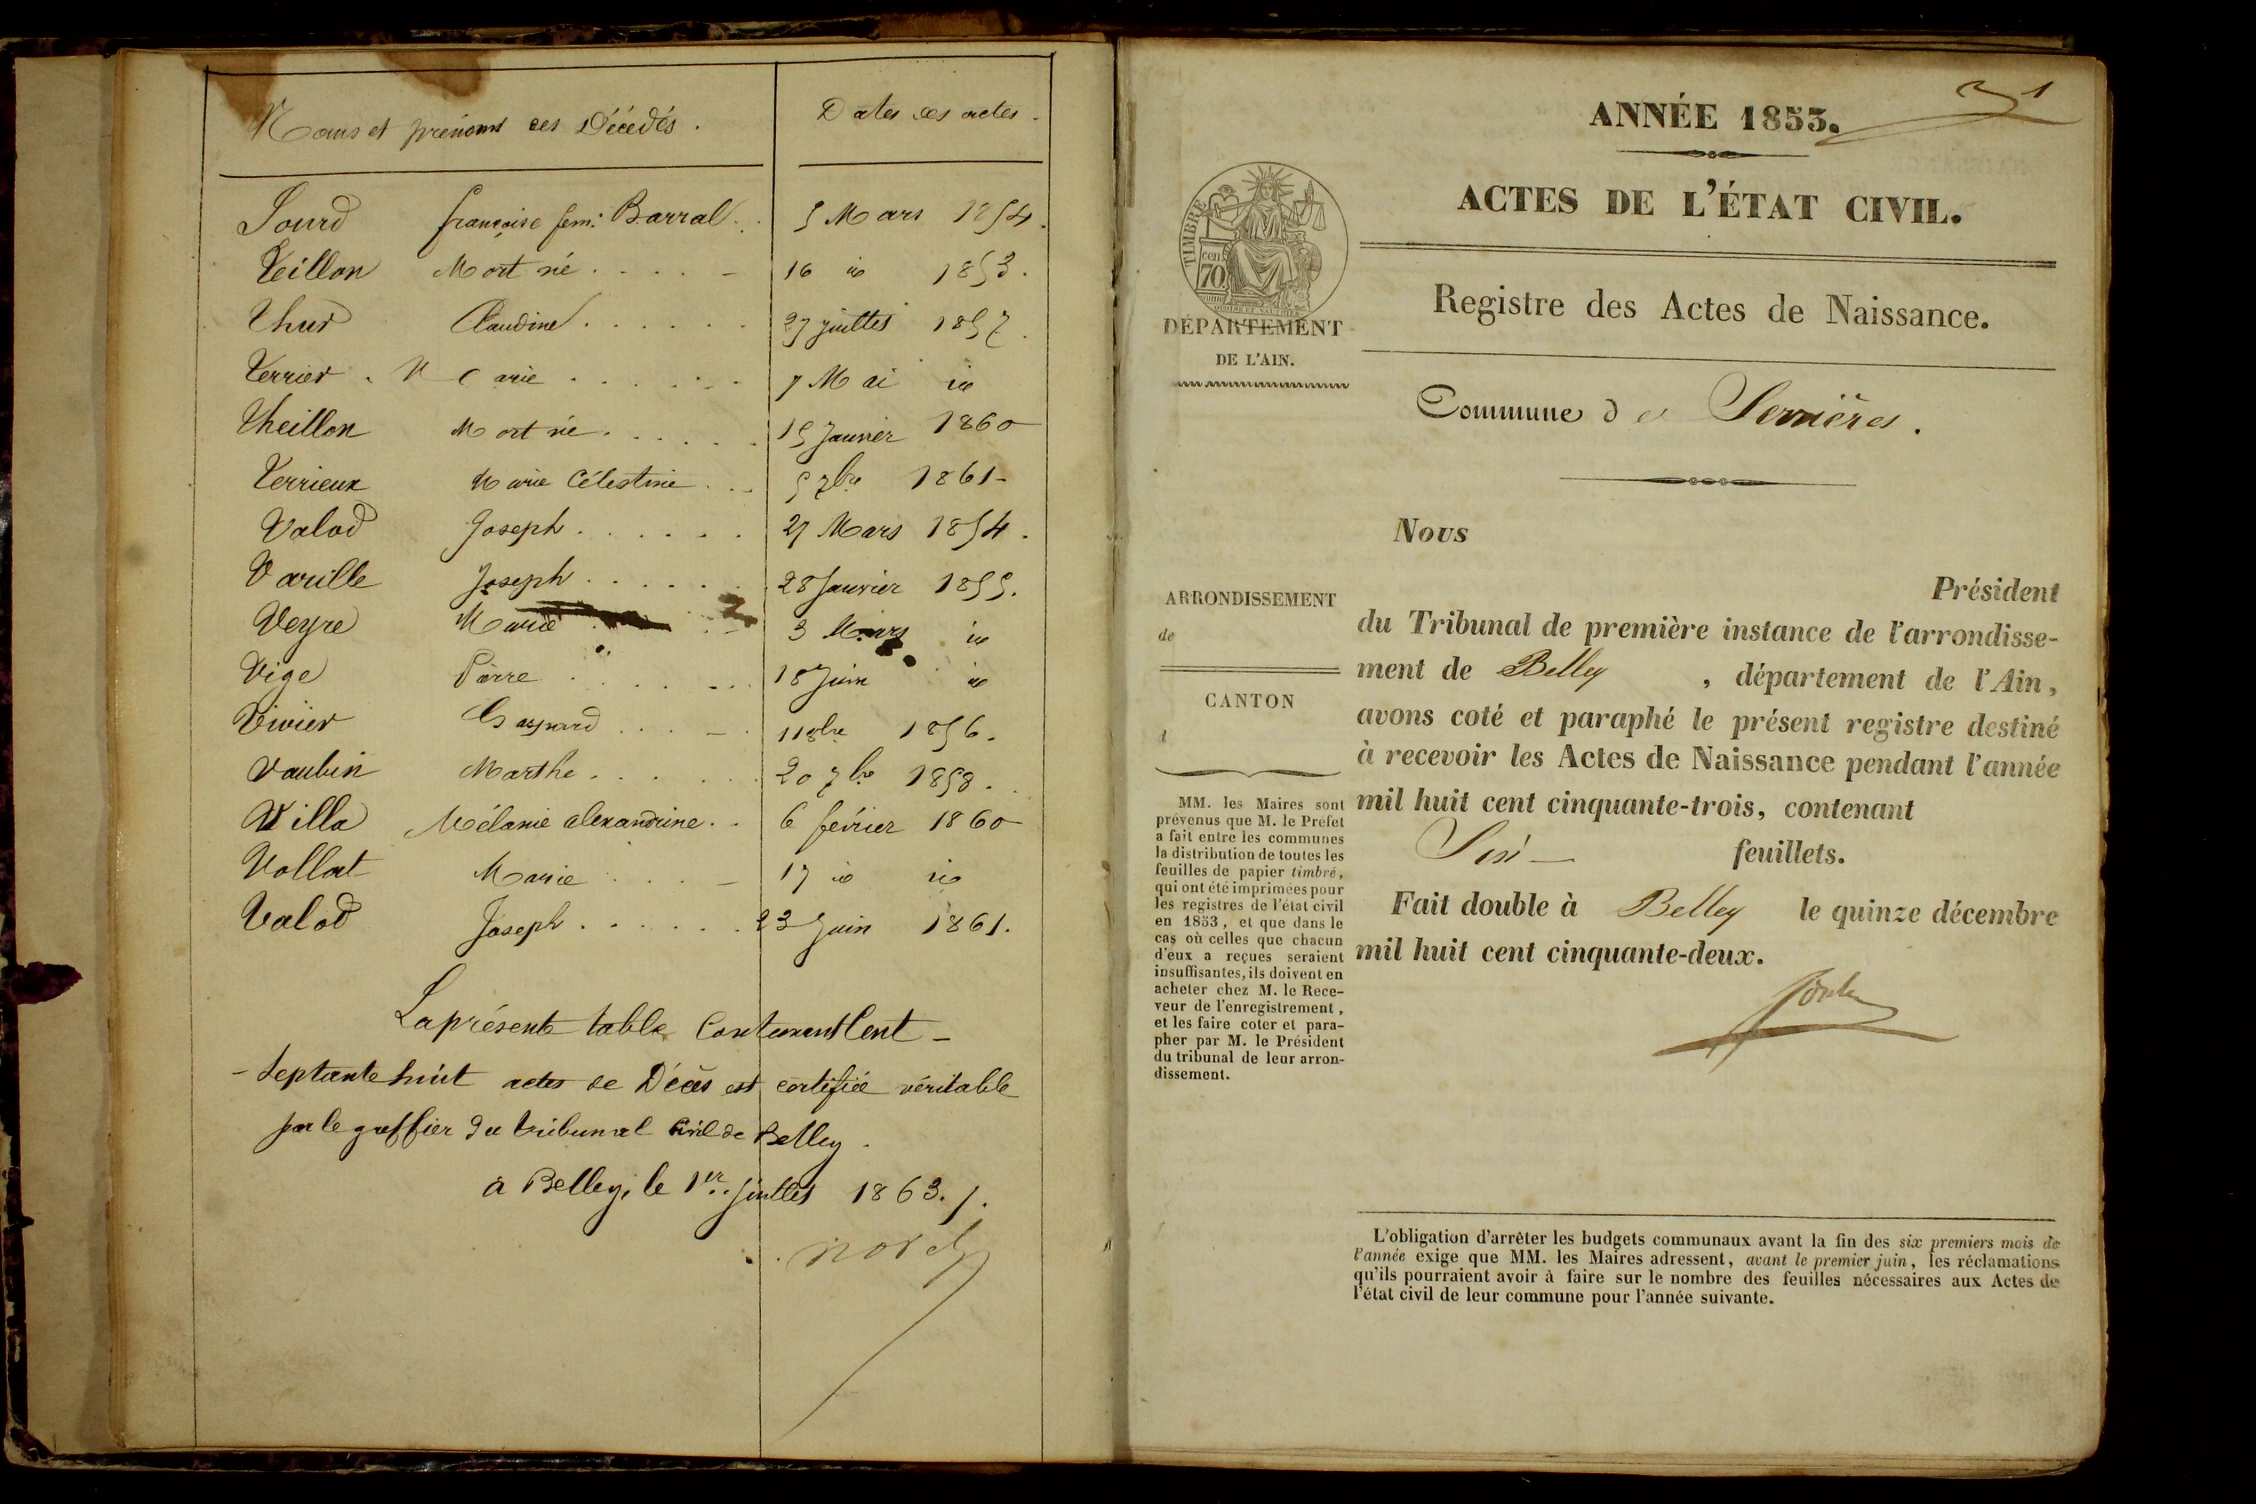 Noms et prénoms des Décédés.
Dates des actes.
Sourd françoise fem: Barral 5 Mars 1854.
Teillon Mort né 16 id 1853.
Thur Claudine 27 juillet 1857.
Terrier Marie 7 Mai id
Theillon Mort né 15 Janvier 1860
Terrieux Marie Célestine 5 7bre 1861
Valod Joseph 27 Mars 1854.
Varille Joseph 28 Janvier 1855.
Veyre Marie 3 Mars id
Vige Pierre 18 Juin id
Vivier Gaspard 11 8bre 1856.
Vaubin Marthe 20 7bre 1858.
Villa Mélanie alexandrine 6 février 1860
Vollat Marie 17 id id
Valod Joseph 23 Juin 1861.
La présente table Contenant Cent
Septante huit actes de Décès est certifiée véritable
par le greffier du tribunal civil de Belley.
à Belley, le 1er. juillet 1863.
1
ANNÉE 1853.
ACTES DE L'ÉTAT CIVIL.
Registre des Actes de Naissance.
TIMBRE
cen
70
DÉPARTEMENT
DE L'AIN.
Commune de Serrières.
Nous
Président
du Tribunal de première instance de l'arrondisse-
ment de Belley, département de l'Ain,
avons coté et paraphé le présent registre destiné
à recevoir les Actes de Naissance pendant l'année
mil huit cent cinquante-trois, contenant
Six feuillets.
Fait double à Belley le quinze décembre
mil huit cent cinquante-deux.
ARRONDISSEMENT
de
CANTON
d
MM. les Maires sont
prévenus que M. le Préfet
a fait entre les communes
la distribution de toutes les
feuilles de papier timbré,
qui ont été imprimées pour
les registres de l'état civil
en 1853, et que dans le
cas où celles que chacun
d'eux a reçues seraient
insuffisantes, ils doivent en
acheter chez M. le Rece-
veur de l'enregistrement,
et les faire coter et para-
pher par M. le Président
du tribunal de leur arron-
dissement.
L'obligation d'arrêter les budgets communaux avant la fin des six premiers mois de
l'année exige que MM. les Maires adressent, avant le premier juin, les réclamations
qu'ils pourraient avoir à faire sur le nombre des feuilles nécessaires aux Actes de
l'état civil de leur commune pour l'année suivante.